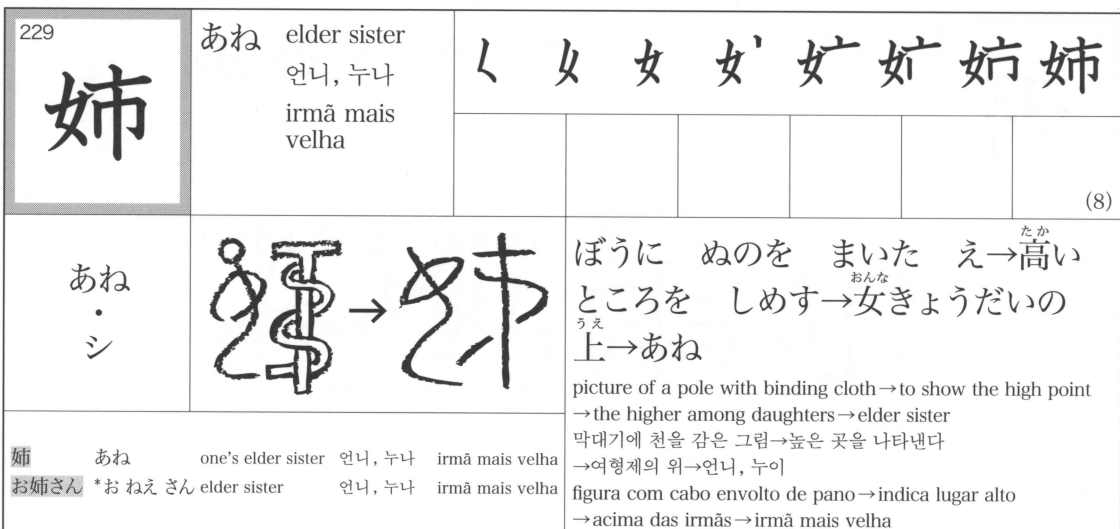 229
姉
あね elder sister
언니, 누나
irmã mais
velha
く 女 女 姉
(8)
あね
・
シ
→
ぼうに ぬのを まいた え→高い
たか
ところを しめす→女きょうだいの
おんな
上→あね
うえ
picture of a pole with binding cloth→to show the high point
→the higher among daughters→elder sister
막대기에 천을 감은 그림→높은 곳을 나타낸다
→여형제의 위→언니, 누이
figura com cabo envolto de pano→indica lugar alto
→acima das irmãs→irmã mais velha
姉 あね one's elder sister 언니, 누나 irmã mais velha
お姉さん *お ねえ さん elder sister 언니, 누나 irmã mais velha